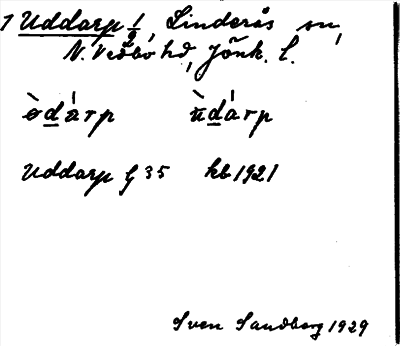 1 Uddarp 1/2, Linderås sn,
N. Vedbo hd, Jönk. l.
òdárp ùdárp
Uddarp G 35 hb 1921
Sven Sandberg 1929